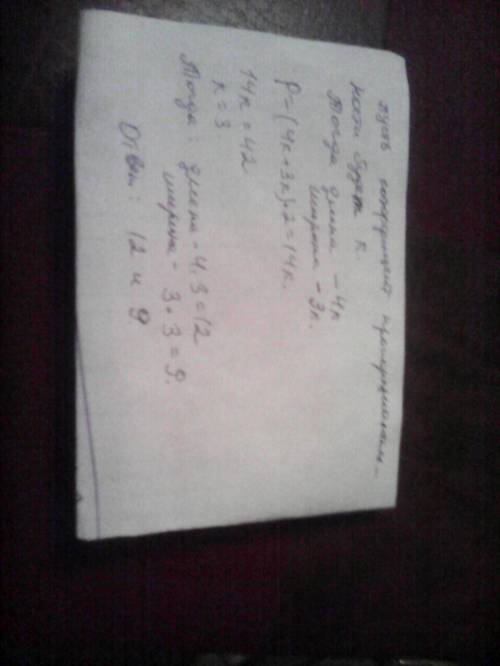 Пусть коэффициент пропорциональ-
ности будет к.
Тогда длина - 4к
ширина - 3к.
P=(4к+3к)·2=14к.
14к=42
к=3
Тогда: длина - 4·3=12
ширина - 3·3=9.
Ответ: 12 и 9